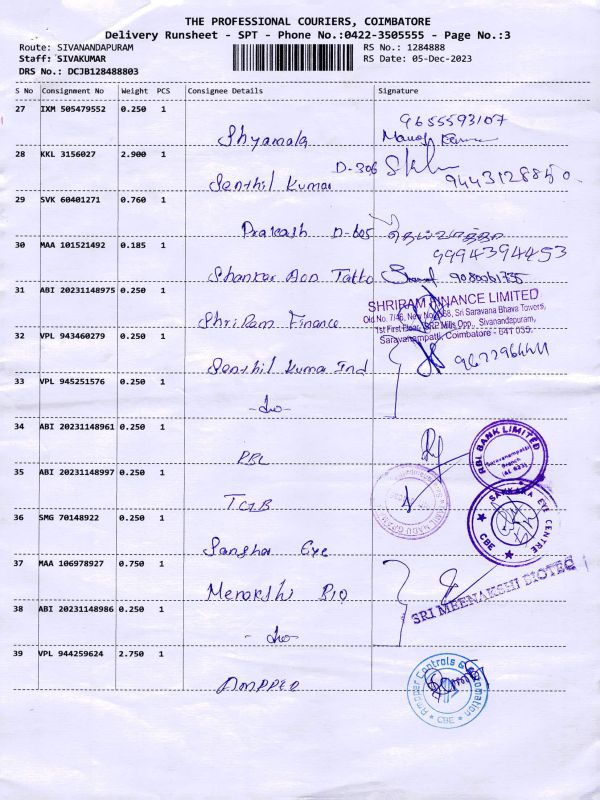 THE PROFESSIONAL COURIERS, COIMBATORE
Delivery Runsheet - SPT - Phone No.:0422-3505555 - Page No.:3
Route: SIVANANDAPURAM
RS No.: 1284888
Staff: SIVAKUMAR
RS Date: 05-Dec-2023
DRS No.: DCJB128488803
S No Consignment No Weight PCS Consignee Details Signature
27 IXM 505479552 0.250 1
9655593107
Shyamala
28 KKL 3156027 2.900 1
D-306
Senthil Kumar
29 SVK 60401271 0.760 1
Prakash D-605
30 MAA 101521492 0.185 1
9994394453
Shankar
31 ABI 20231148975 0.250 1
SHRIRAM FINANCE LIMITED
Sri Saravana Bhava Towers,
1st First Floor, SRP Mills Opp., Sivanandapuram,
Saravanampatti, Coimbatore - 641 035.
Shriram Finance
32 VPL 943460279 0.250 1
Senthil Kumar Ind
33 VPL 945251576 0.250 1
-do-
34 ABI 20231148961 0.250 1
RBL
RBL BANK LIMITED
Saravanampatti
Branch
35 ABI 20231148997 0.250 1
TGB
36 SMG 70148922 0.250 1
Sankara Eye
SANKARA EYE CENTRE
CBE
37 MAA 106978927 0.750 1
Menakshi Bio
SRI MEENAKSHI BIOTEC
38 ABI 20231148986 0.250 1
-do-
39 VPL 944259624 2.750 1
Ampper
Controls & Automation
CBE